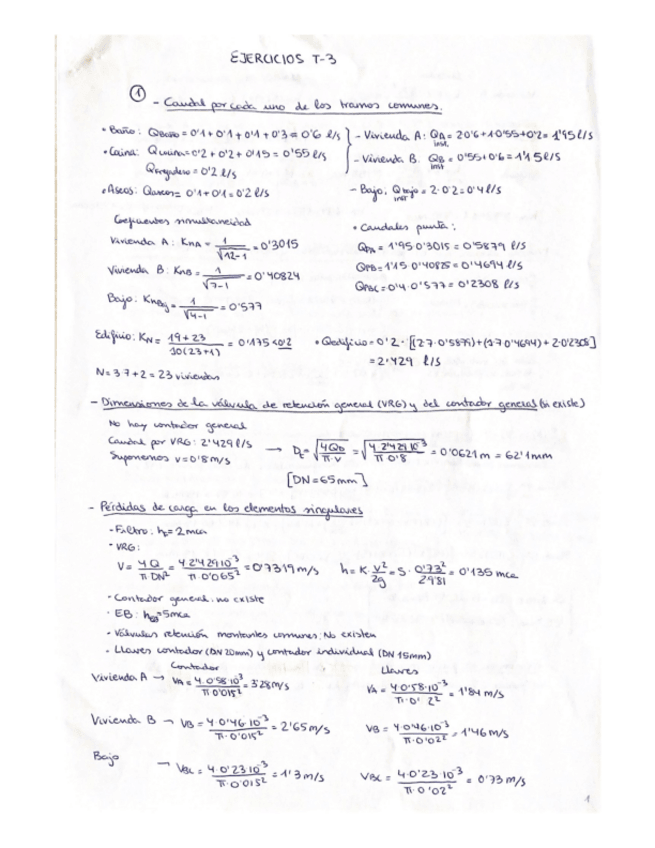 EJERCICIOS T-3
① - Caudal por cada uno de los tramos comunes.
• Baño: QBaño = 0'1+0'1+0'1+0'3 = 0'6 l/s
• Cocina: Qcocina = 0'2+0'2+0'15 = 0'55 l/s
Qfregadero = 0'2 l/s
• Aseos: Qaseos = 0'1+0'1 = 0'2 l/s
- Vivienda A: QA inst = 2·0'6+1·0'55+0'2 = 1'95 l/s
- Vivienda B. QB inst = 0'55+0'6 = 1'15 l/s
- Bajo: Qbajo inst = 2·0'2 = 0'4 l/s
Coeficientes simultaneidad
Vivienda A: KnA = 1/√12-1 = 0'3015
Vivienda B: KnB = 1/√7-1 = 0'40824
Bajo: KnBaj = 1/√4-1 = 0'577
• Caudales punta:
QPA = 1'95·0'3015 = 0'5879 l/s
QPB = 1'15·0'40825 = 0'4694 l/s
QPBC = 0'4·0'577 = 0'2308 l/s
Edificio: KN = 19+23/10(23+1) = 0'175 < 0'2
N = 3·7+2 = 23 viviendas
• Qedificio = 0'2·[(2·7·0'5879)+(1·7·0'4694)+2·0'2308]
= 2'429 l/s
- Dimensiones de la válvula de retención general (VRG) y del contador general (si existe)
No hay contador general
Caudal por VRG: 2'429 l/s
Suponemos v = 0'8 m/s
→ Dt = √4Qb/π·v = √4·2'429·10⁻³/π·0'8 = 0'0621 m = 62'1 mm
[DN = 65 mm]
- Pérdidas de carga en los elementos singulares
- Filtro: hf = 2 mca
- VRG:
V = 4Q/π·DN² = 4·2'429·10⁻³/π·0'065² = 0'7319 m/s h = K·v²/2g = 5·0'73²/2·9'81 = 0'135 mca
- Contador general: no existe
• EB: hEB = 5 mca
- Válvulas retención montantes comunes: No existen
- Llaves contador (DN 20mm) y contador individual (DN 15mm)
Contador
Llaves
Vivienda A → VA = 4·0'58·10⁻³/π·0'015² = 3'28 m/s
VA = 4·0'58·10⁻³/π·0' 2² = 1'84 m/s
Vivienda B → VB = 4·0'46·10⁻³/π·0'015² = 2'65 m/s
VB = 4·0'46·10⁻³/π·0'02² = 1'46 m/s
Bajo → VBC = 4·0'23·10⁻³/π·0'015² = 1'3 m/s
VBC = 4·0'23·10⁻³/π·0'02² = 0'73 m/s
1